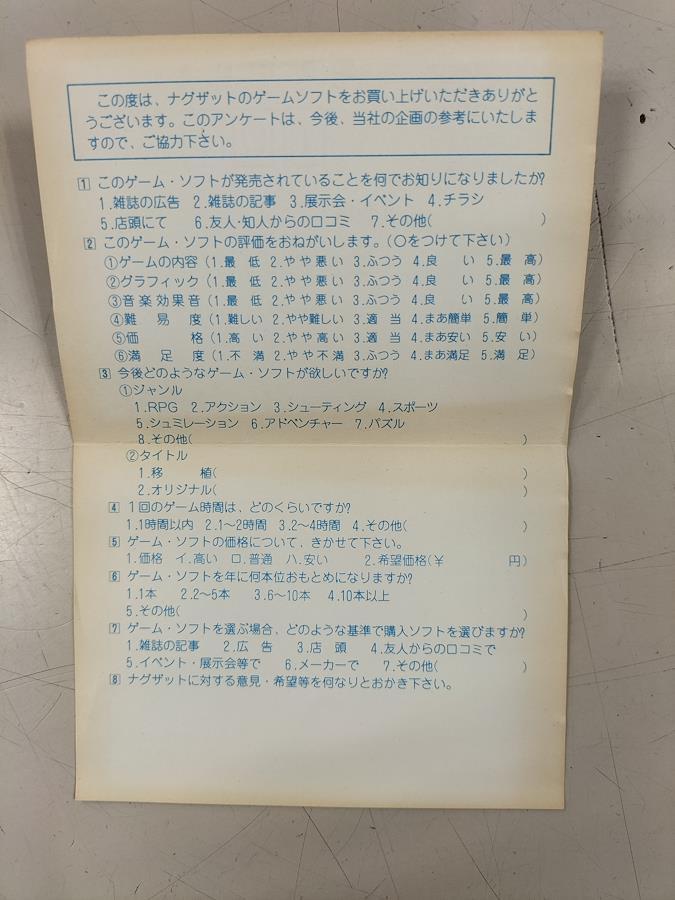 この度は、ナグザットのゲームソフトをお買い上げいただきありがと
うございます。このアンケートは、今後、当社の企画の参考にいたしま
すので、ご協力下さい。
1 このゲーム・ソフトが発売されていることを何でお知りになりましたか?
1.雑誌の広告 2.雑誌の記事 3.展示会・イベント 4.チラシ
5.店頭にて 6.友人・知人からの口コミ 7.その他( )
2 このゲーム・ソフトの評価をおねがいします。(○をつけて下さい)
①ゲームの内容(1.最 低 2.やや悪い 3.ふつう 4.良 い 5.最 高)
②グラフィック(1.最 低 2.やや悪い 3.ふつう 4.良 い 5.最 高)
③音楽効果音(1.最 低 2.やや悪い 3.ふつう 4.良 い 5.最 高)
④難 易 度(1.難しい 2.やや難しい 3.適 当 4.まあ簡単 5.簡 単)
⑤価 格(1.高 い 2.やや高い 3.適 当 4.まあ安い 5.安 い)
⑥満 足 度(1.不 満 2.やや不満 3.ふつう 4.まあ満足 5.満 足)
3 今後どのようなゲーム・ソフトが欲しいですか?
①ジャンル
1.RPG 2.アクション 3.シューティング 4.スポーツ
5.シュミレーション 6.アドベンチャー 7.パズル
8.その他( )
②タイトル
1.移 植( )
2.オリジナル( )
4 1回のゲーム時間は、どのくらいですか?
1.1時間以内 2.1〜2時間 3.2〜4時間 4.その他( )
5 ゲーム・ソフトの価格について、きかせて下さい。
1.価格 イ.高い ロ.普通 ハ.安い 2.希望価格(¥ 円)
6 ゲーム・ソフトを年に何本位おもとめになりますか?
1.1本 2.2〜5本 3.6〜10本 4.10本以上
5.その他( )
7 ゲーム・ソフトを選ぶ場合、どのような基準で購入ソフトを選びますか?
1.雑誌の記事 2.広 告 3.店 頭 4.友人からの口コミで
5.イベント・展示会等で 6.メーカーで 7.その他( )
8 ナグザットに対する意見・希望等を何なりとおかき下さい。